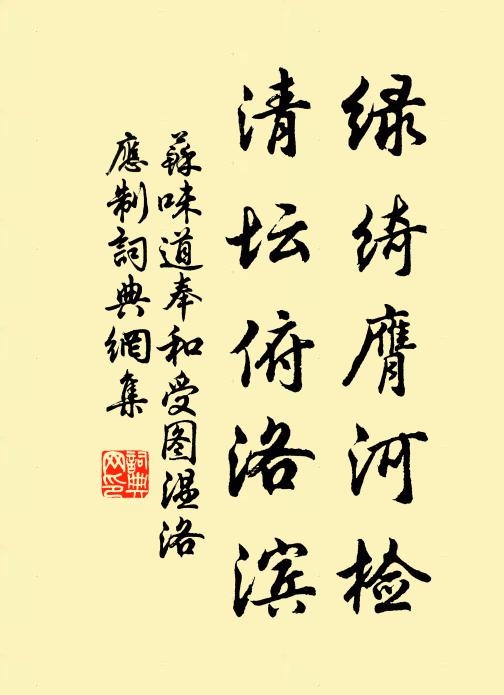 绿绮膺河检
清坛俯洛滨
蘇味道奉和受图温洛
應制詞典網集
詞典网印